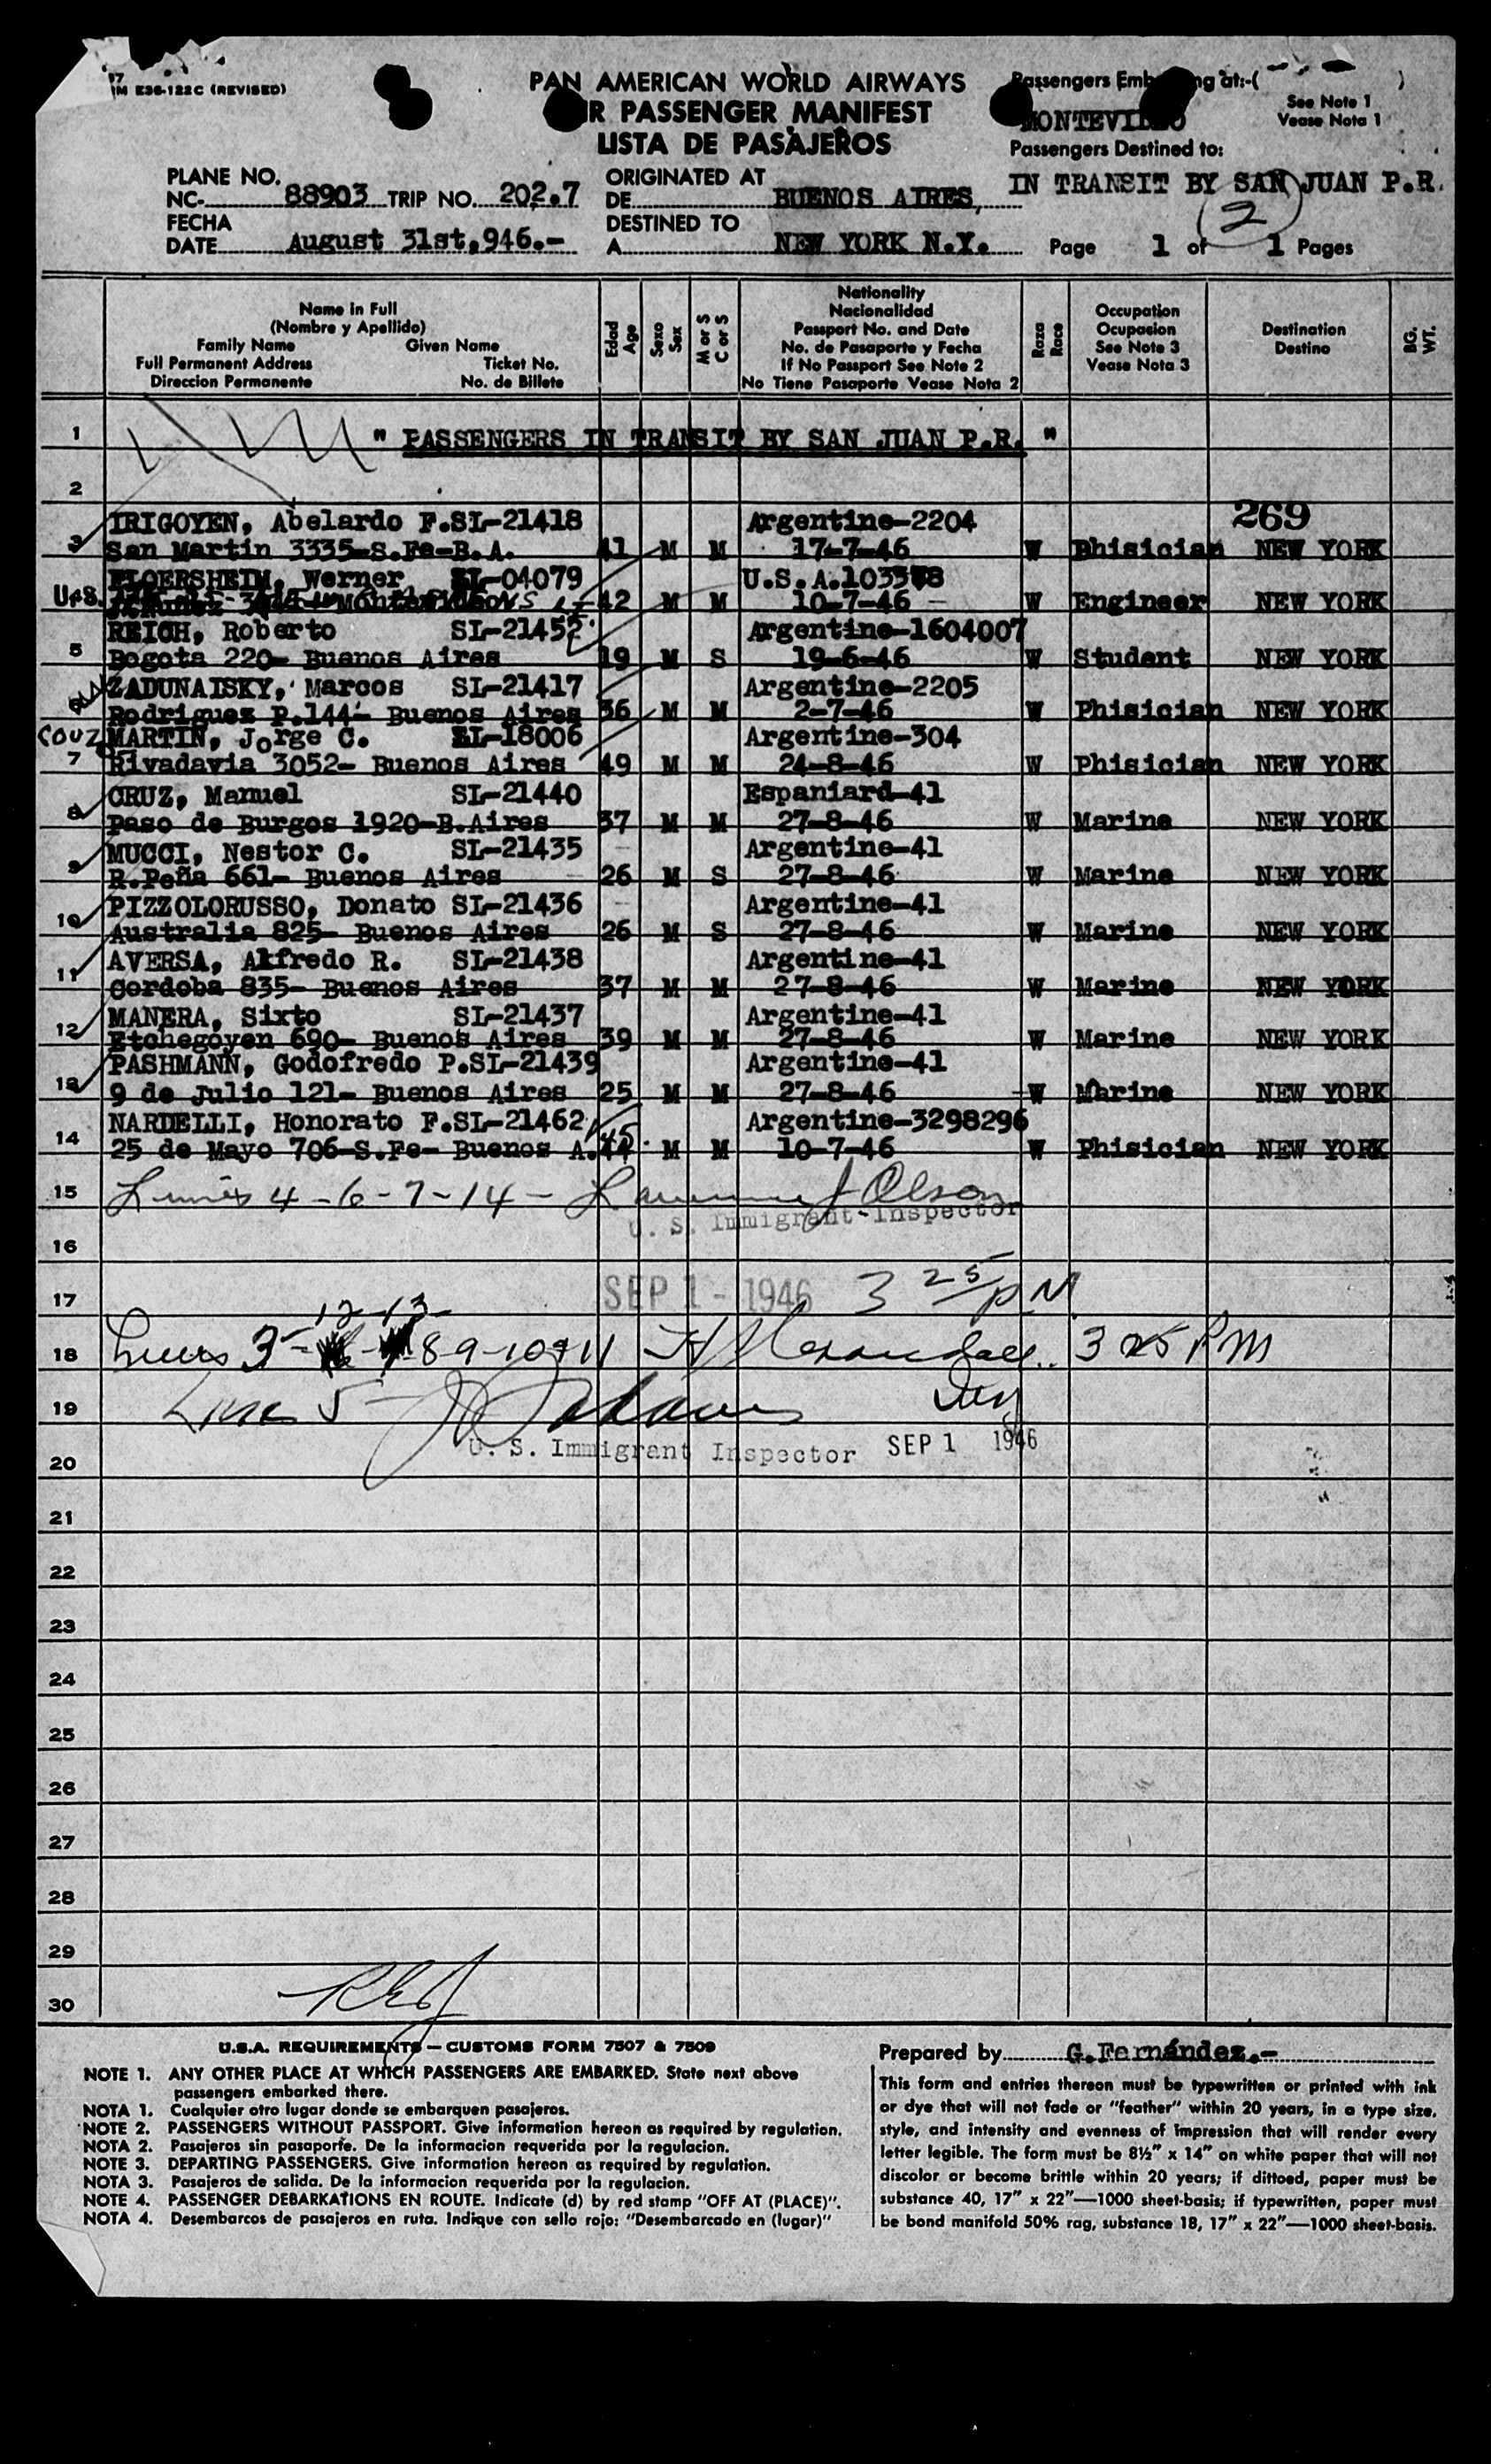 M E36-122C (REVISED)
PAN AMERICAN WORLD AIRWAYS
R PASSENGER MANIFEST
LISTA DE PASAJEROS
Passengers Emb ng at:-( )
See Note 1
Vease Nota 1
MONTEVI
Passengers Destined to:
IN TRANSIT BY SAN JUAN P.R.
PLANE NO.
NC- 88903 TRIP NO. 202.7
ORIGINATED AT
DE BUENOS AIRES,
2
FECHA
DATE August 31st,946.-
DESTINED TO
A NEW YORK N.Y.
Page 1 of 1 Pages
Name in Full
(Nombre y Apellido)
Family Name Given Name
Full Permanent Address Ticket No.
Direccion Permanente No. de Billete
Edad
Age
Sexo
Sex
M or S
C or S
Nationality
Nacionalidad
Passport No. and Date
No. de Pasaporte y Fecha
If No Passport See Note 2
No Tiene Pasaporte Vease Nota 2
Raza
Race
Occupation
Ocupasion
See Note 3
Vease Nota 3
Destination
Destino
BG.
WT.
1 " PASSENGERS IN TRANSIT BY SAN JUAN P.R. "
2
269
IRIGOYEN, Abelardo F.SI-21418 Argentine-2204
3 San Martin 3335-S.Fe-B.A. 41 M M 17-7-46 W Phisician NEW YORK
FLOERSHEIM, Werner 04079 U.S.A.
U.S. 42 M M 10-7-46 W Engineer NEW YORK
REICH, Roberto SI-21452 Argentine-1604007
5 Bogota 220- Buenos Aires 19 M S 19-6-46 W Student NEW YORK
ZADUNAISKY, Marcos SI-21417 Argentine-2205
Rodriguez P.144- Buenos Aires 36 M M 2-7-46 W Phisician NEW YORK
MARTIN, Jorge C. 18006 Argentine-304
7 Rivadavia 3052- Buenos Aires 49 M M 24-8-46 W Phisician NEW YORK
CRUZ, Manuel SI-21440 Espaniard-41
8 Paso de Burgos 1920-B.Aires 37 M M 27-8-46 W Marine NEW YORK
MUCCI, Nestor C. SI-21435 Argentine-41
9 R.Peña 661- Buenos Aires 26 M S 27-8-46 W Marine NEW YORK
PIZZOLORUSSO, Donato SI-21436 Argentine-41
10 Australia 825- Buenos Aires 26 M S 27-8-46 W Marine NEW YORK
AVERSA, Alfredo R. SI-21438 Argentine-41
11 Cordoba 835- Buenos Aires 37 M M 27-8-46 W Marine NEW YORK
MANERA, Sixto SI-21437 Argentine-41
12 Etchegoyen 690- Buenos Aires 39 M M 27-8-46 W Marine NEW YORK
PASHMANN, Godofredo P.SI-21439 Argentine-41
13 9 de Julio 121- Buenos Aires 25 M M 27-8-46 W Marine NEW YORK
NARDELLI, Honorato F.SI-21462 Argentine-3298296
14 25 de Mayo 706-S.Fe- Buenos A. 45 44 M M 10-7-46 W Phisician NEW YORK
15 4-6-7-14- J Olson
U. S. Immigrant Inspector
16
17 SEP 1 - 1946 3 25 PM
12-13-
18 3- 8-9-10-11 3 25 PM
19 Line 5
20 U. S. Immigrant Inspector SEP 1 1946
21
22
23
24
25
26
27
28
29
30
U.S.A. REQUIREMENTS — CUSTOMS FORM 7507 & 7509
NOTE 1. ANY OTHER PLACE AT WHICH PASSENGERS ARE EMBARKED. State next above
passengers embarked there.
NOTA 1. Cualquier otro lugar donde se embarquen pasajeros.
NOTE 2. PASSENGERS WITHOUT PASSPORT. Give information hereon as required by regulation.
NOTA 2. Pasajeros sin pasaporte. De la informacion requerida por la regulacion.
NOTE 3. DEPARTING PASSENGERS. Give information hereon as required by regulation.
NOTA 3. Pasajeros de salida. De la informacion requerida por la regulacion.
NOTE 4. PASSENGER DEBARKATIONS EN ROUTE. Indicate (d) by red stamp "OFF AT (PLACE)".
NOTA 4. Desembarcos de pasajeros en ruta. Indique con sello rojo: "Desembarcado en (lugar)"
Prepared by G.Fernández.-
This form and entries thereon must be typewritten or printed with ink
or dye that will not fade or "feather" within 20 years, in a type size,
style, and intensity and evenness of impression that will render every
letter legible. The form must be 8½" x 14" on white paper that will not
discolor or become brittle within 20 years; if dittoed, paper must be
substance 40, 17" x 22"—1000 sheet-basis; if typewritten, paper must
be bond manifold 50% rag, substance 18, 17" x 22"—1000 sheet-basis.